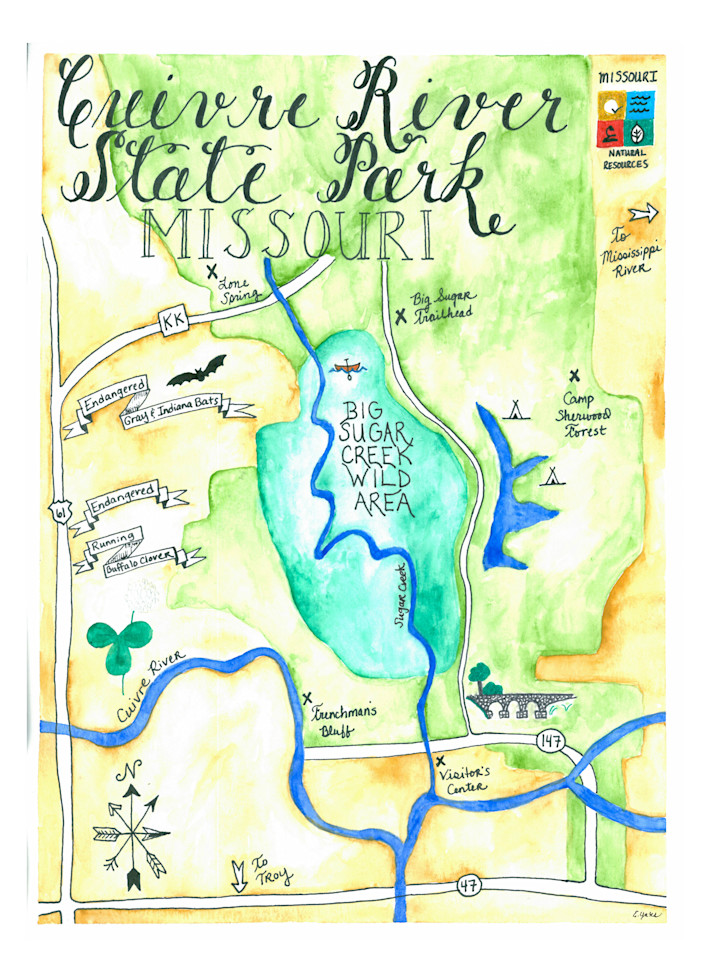 Cuivre River
State Park
MISSOURI
MISSOURI
NATURAL
RESOURCES
To
Mississippi
River
Lone
Spring
KK
Big Sugar
Trailhead
Camp
Sherwood
Forest
Endangered
Gray & Indiana Bats
BIG
SUGAR
CREEK
WILD
AREA
61
Endangered
Running
Buffalo Clover
Sugar Creek
Cuivre River
Frenchman's
Bluff
147
Visitor's
Center
N
To
TROY
47